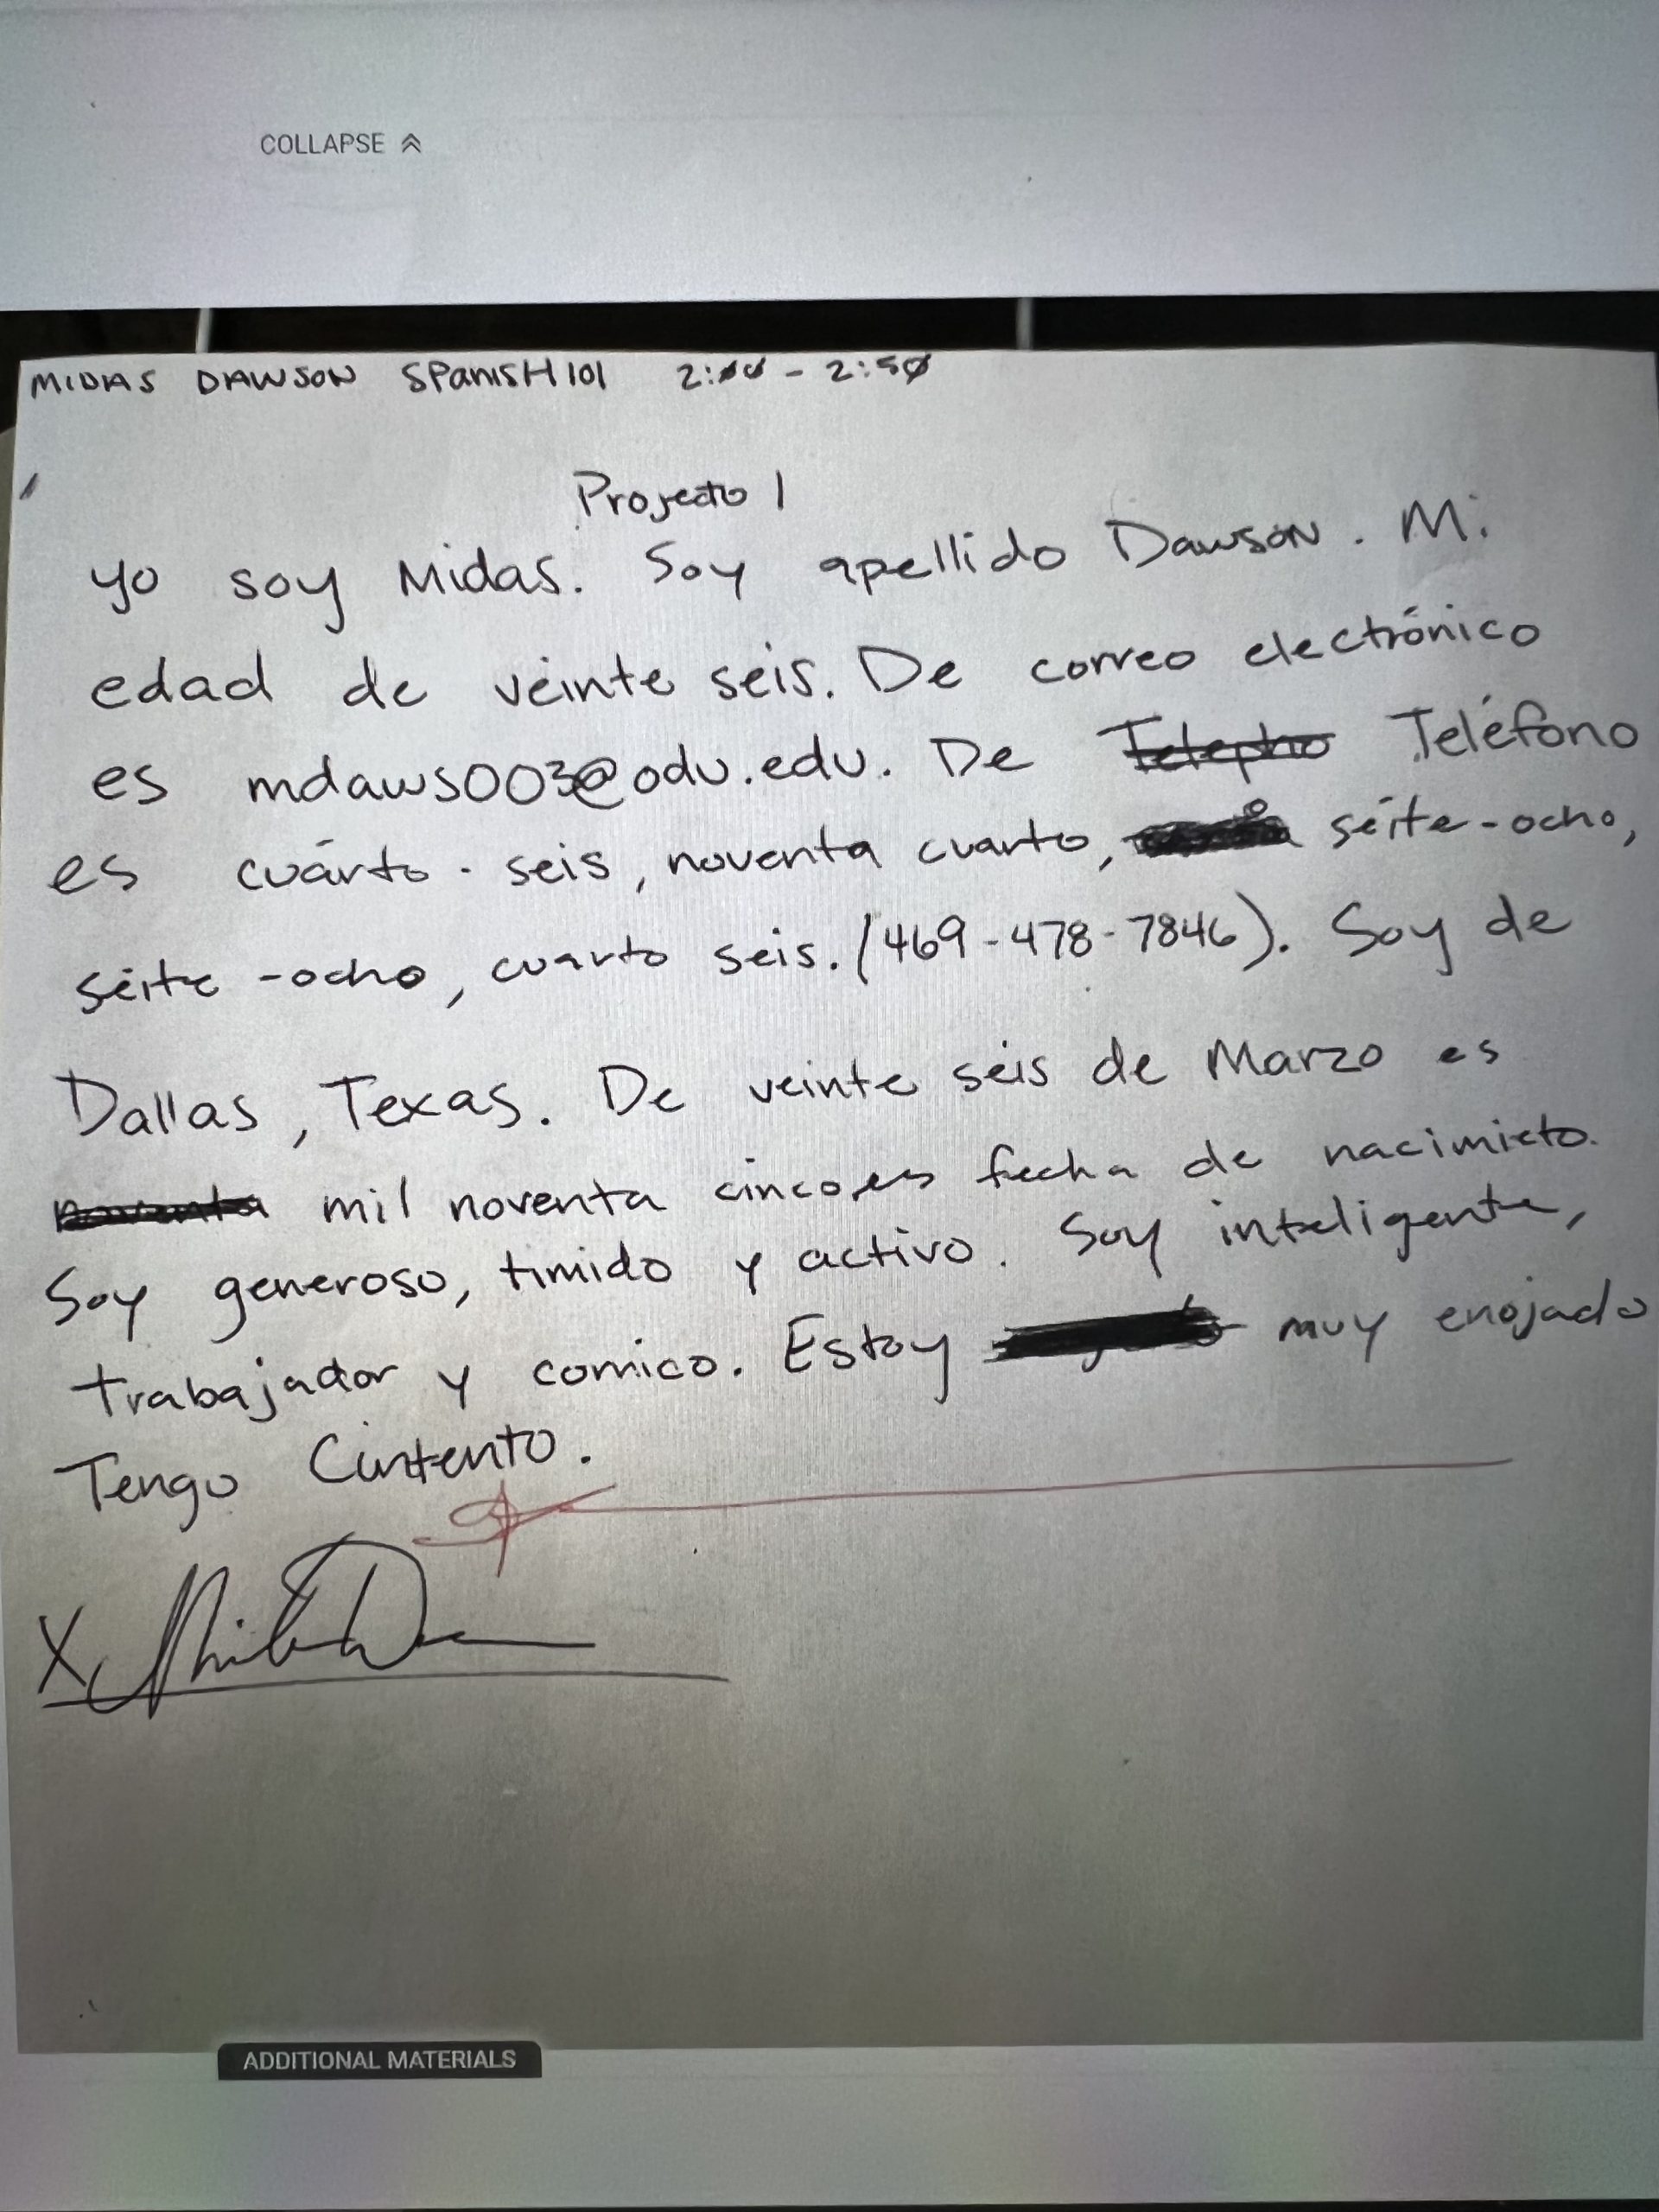 COLLAPSE
MIDAS DAWSON SPanisH 101 2:00 - 2:50
Proyecto 1
yo soy Midas. Soy apellido Dawson. Mi
edad de veinte seis. De correo electrónico
es mdaws003@odu.edu. De Telepho Teléfono
es cuárto - seis, noventa cuarto, séite-ocho,
séite -ocho, cuarto seis. (469-478-7846). Soy de
Dallas, Texas. De veinte séis de Marzo es
noventa mil noventa cinco, es fecha de nacimieto.
Soy generoso, timido y activo. Soy inteligente,
trabajador y comico. Estoy muy enojado
Tengo Cintento.
X
ADDITIONAL MATERIALS